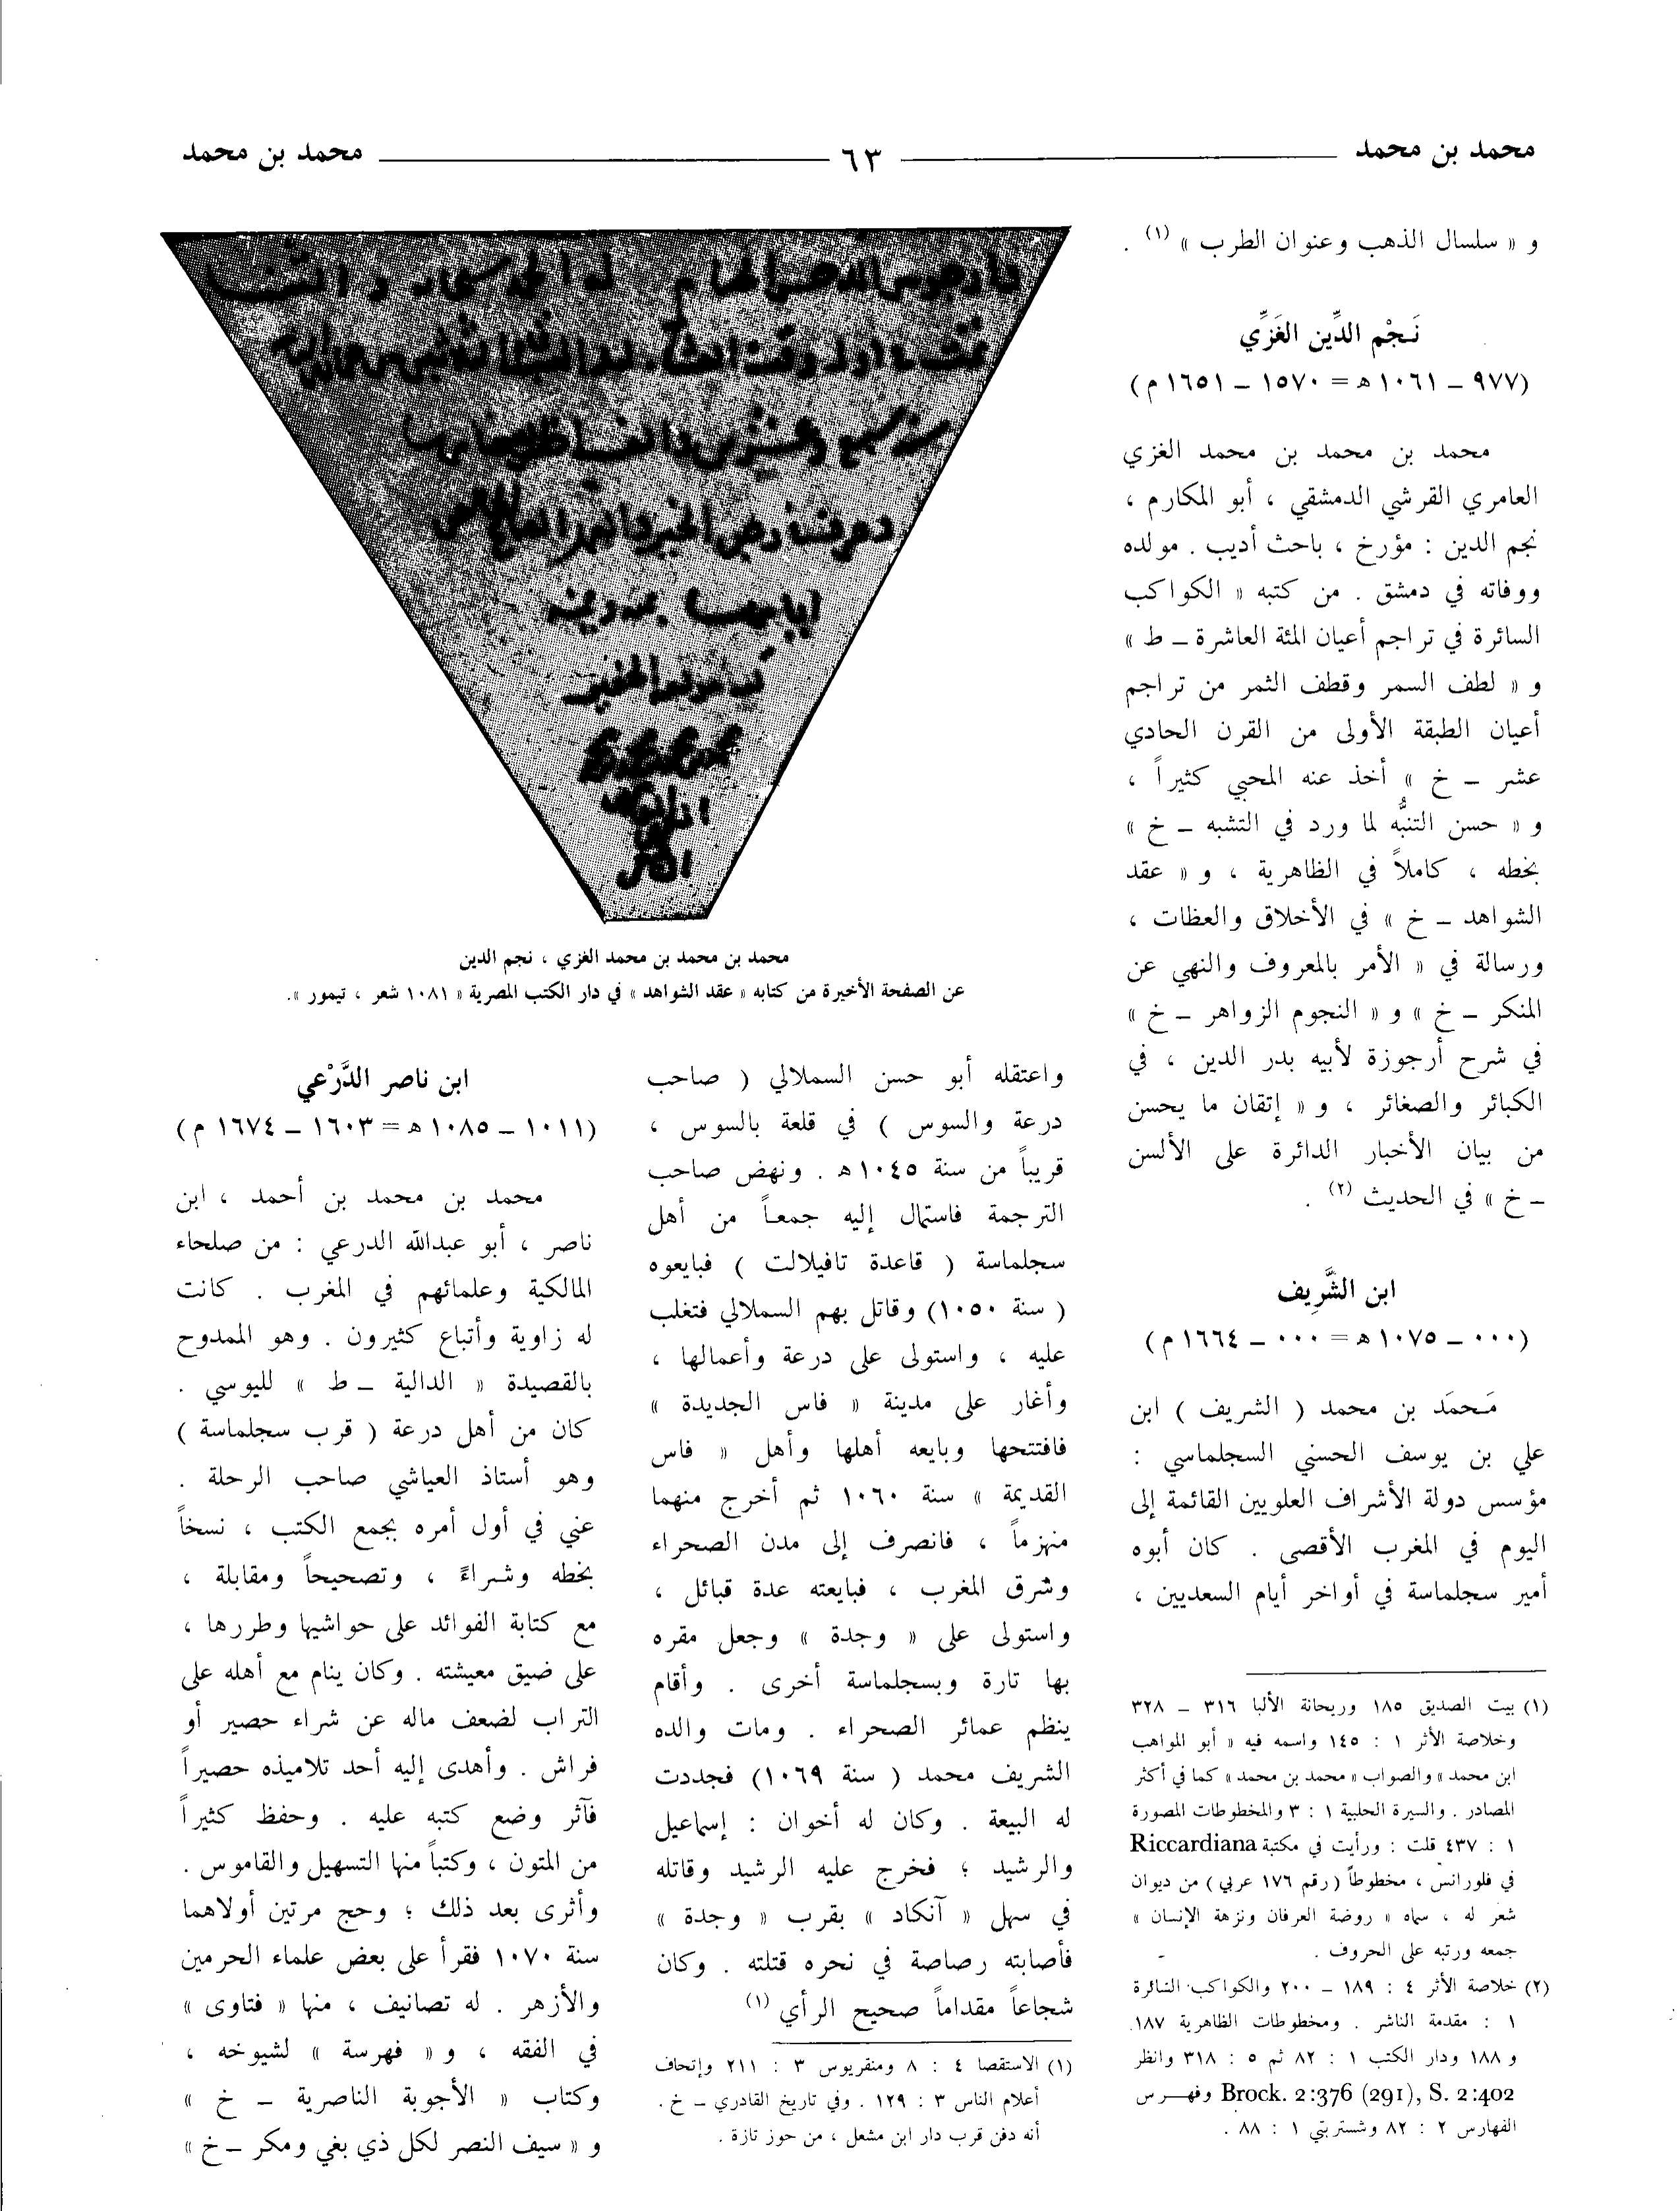 محمد بن محمد ٦٣ محمد بن محمد
و « سلسال الذهب وعنوان الطرب » (١) .
نَجْم الدِّين الغَزِّي
(٩٧٧ – ١٠٦١ ه = ١٥٧٠ – ١٦٥١ م)
محمد بن محمد بن محمد الغزي
العامري القرشي الدمشقي ، أبو المكارم ،
نجم الدين : مؤرخ ، باحث أديب . مولده
ووفاته في دمشق . من كتبه « الكواكب
السائرة في تراجم أعيان المئة العاشرة – ط »
و « لطف السمر وقطف الثمر من تراجم
أعيان الطبقة الأولى من القرن الحادي
عشر – خ » أخذ عنه المحبي كثيراً ،
و « حسن التنبُّه لما ورد في التشبه – خ »
بخطه ، كاملاً في الظاهرية ، و « عقد
الشواهد – خ » في الأخلاق والعظات ،
ورسالة في « الأمر بالمعروف والنهي عن
المنكر – خ » و « النجوم الزواهر – خ »
في شرح أرجوزة لأبيه بدر الدين ، في
الكبائر والصغائر ، و « إتقان ما يحسن
من بيان الأخبار الدائرة على الألسن
– خ » في الحديث (٢) .
ابن الشَّرِيف
(٠٠٠ – ١٠٧٥ ه = ٠٠٠ – ١٦٦٤ م)
مَحمَد بن محمد ( الشريف ) ابن
علي بن يوسف الحسني السجلماسي :
مؤسس دولة الأشراف العلويين القائمة إلى
اليوم في المغرب الأقصى . كان أبوه
أمير سجلماسة في أواخر أيام السعديين ،
(١) بيت الصديق ١٨٥ وريحانة الألبا ٣١٦ – ٣٢٨
وخلاصة الأثر ١ : ١٤٥ واسمه فيه « أبو المواهب
ابن محمد » والصواب « محمد بن محمد » كما في أكثر
المصادر . والسيرة الحلبية ١ : ٣ والمخطوطات المصورة
١ : ٤٣٧ قلت : ورأيت في مكتبة Riccardiana
في فلورانس ، مخطوطاً (رقم ١٧٦ عربي) من ديوان
شعر له ، سماه « روضة العرفان ونزهة الإنسان »
جمعه ورتبه على الحروف .
(٢) خلاصة الأثر ٤ : ١٨٩ – ٢٠٠ والكواكب السائرة
١ : مقدمة الناشر . ومخطوطات الظاهرية ١٨٧.
و ١٨٨ ودار الكتب ١ : ٨٢ ثم ٥ : ٣١٨ وانظر
Brock. 2:376 (291), S. 2:402 وفهرس
الفهارس ٢ : ٨٢ وشستربتي ١ : ٨٨ .
محمد بن محمد بن محمد الغزي ، نجم الدين
عن الصفحة الأخيرة من كتابه « عقد الشواهد » في دار الكتب المصرية « ١٠٨١ شعر ، تيمور ».
واعتقله أبو حسن السملالي ( صاحب
درعة والسوس ) في قلعة بالسوس ،
قريباً من سنة ١٠٤٥ ه . ونهض صاحب
الترجمة فاستمال إليه جمعاً من أهل
سجلماسة ( قاعدة تافيلالت ) فبايعوه
( سنة ١٠٥٠) وقاتل بهم السملالي فتغلب
عليه ، واستولى على درعة وأعمالها ،
وأغار على مدينة « فاس الجديدة »
فافتتحها وبايعه أهلها وأهل « فاس
القديمة » سنة ١٠٦٠ ثم أخرج منهما
منهزماً ، فانصرف إلى مدن الصحراء
وشرق المغرب ، فبايعته عدة قبائل ،
واستولى على « وجدة » وجعل مقره
بها تارة وبسجلماسة أخرى . وأقام
ينظم عمائر الصحراء . ومات والده
الشريف محمد ( سنة ١٠٦٩) فجددت
له البيعة . وكان له أخوان : إسماعيل
والرشيد ؛ فخرج عليه الرشيد وقاتله
في سهل « آنكاد » بقرب « وجدة »
فأصابته رصاصة في نحره قتلته . وكان
شجاعاً مقداماً صحيح الرأي (١)
(١) الاستقصا ٤ : ٨ ومنقريوس ٣ : ٢١١ وإتحاف
أعلام الناس ٣ : ١٢٩ . وفي تاريخ القادري – خ .
أنه دفن قرب دار ابن مشعل ، من حوز تازة .
ابن ناصر الدَّرْعي
(١٠١١ – ١٠٨٥ ه = ١٦٠٣ – ١٦٧٤ م)
محمد بن محمد بن أحمد ، ابن
ناصر ، أبو عبدالله الدرعي : من صلحاء
المالكية وعلمائهم في المغرب . كانت
له زاوية وأتباع كثيرون . وهو الممدوح
بالقصيدة « الدالية – ط » لليوسي .
كان من أهل درعة ( قرب سجلماسة )
وهو أستاذ العياشي صاحب الرحلة .
عني في أول أمره بجمع الكتب ، نسخاً
بخطه وشراءً ، وتصحيحاً ومقابلة ،
مع كتابة الفوائد على حواشيها وطررها ،
على ضيق معيشته . وكان ينام مع أهله على
التراب لضعف ماله عن شراء حصير أو
فراش . وأهدى إليه أحد تلاميذه حصيراً
فآثر وضع كتبه عليه . وحفظ كثيراً
من المتون ، وكتباً منها التسهيل والقاموس .
وأثرى بعد ذلك ؛ وحج مرتين أولاهما
سنة ١٠٧٠ فقرأ على بعض علماء الحرمين
والأزهر . له تصانيف ، منها « فتاوى »
في الفقه ، و « فهرسة » لشيوخه ،
وكتاب « الأجوبة الناصرية – خ »
و « سيف النصر لكل ذي بغي ومكر – خ »